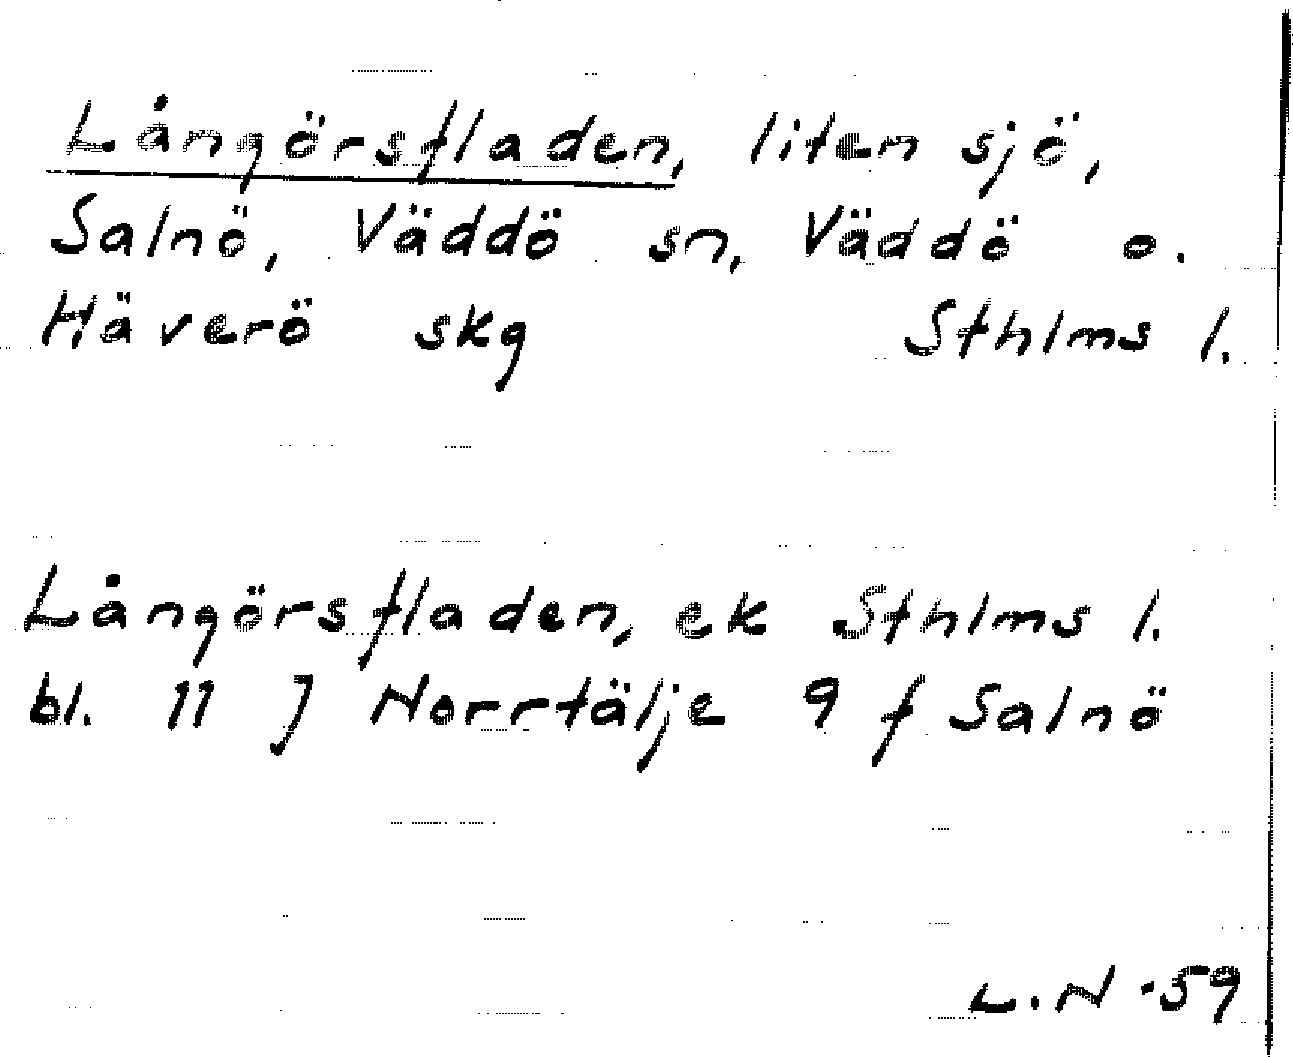 Långörsfladen, liten sjö,
Salnö, Väddö sn, Väddö o.
Häverö skg Sthlms l.
Långörsfladen, ek Sthlms l.
bl. 11 J Norrtälje 9 f Salnö
L.N -59